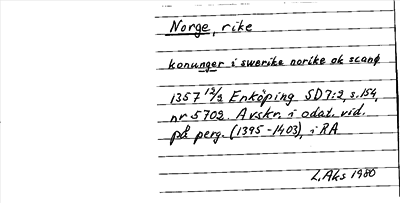 Norge, rike
konunger i swerike norike ok scanø
1357 12/2 Enköping SD 7:2, s.154,
nr 5702. Avskr. i odat. vid.
på perg. (1395-1403), i RA
L. Aks 1980